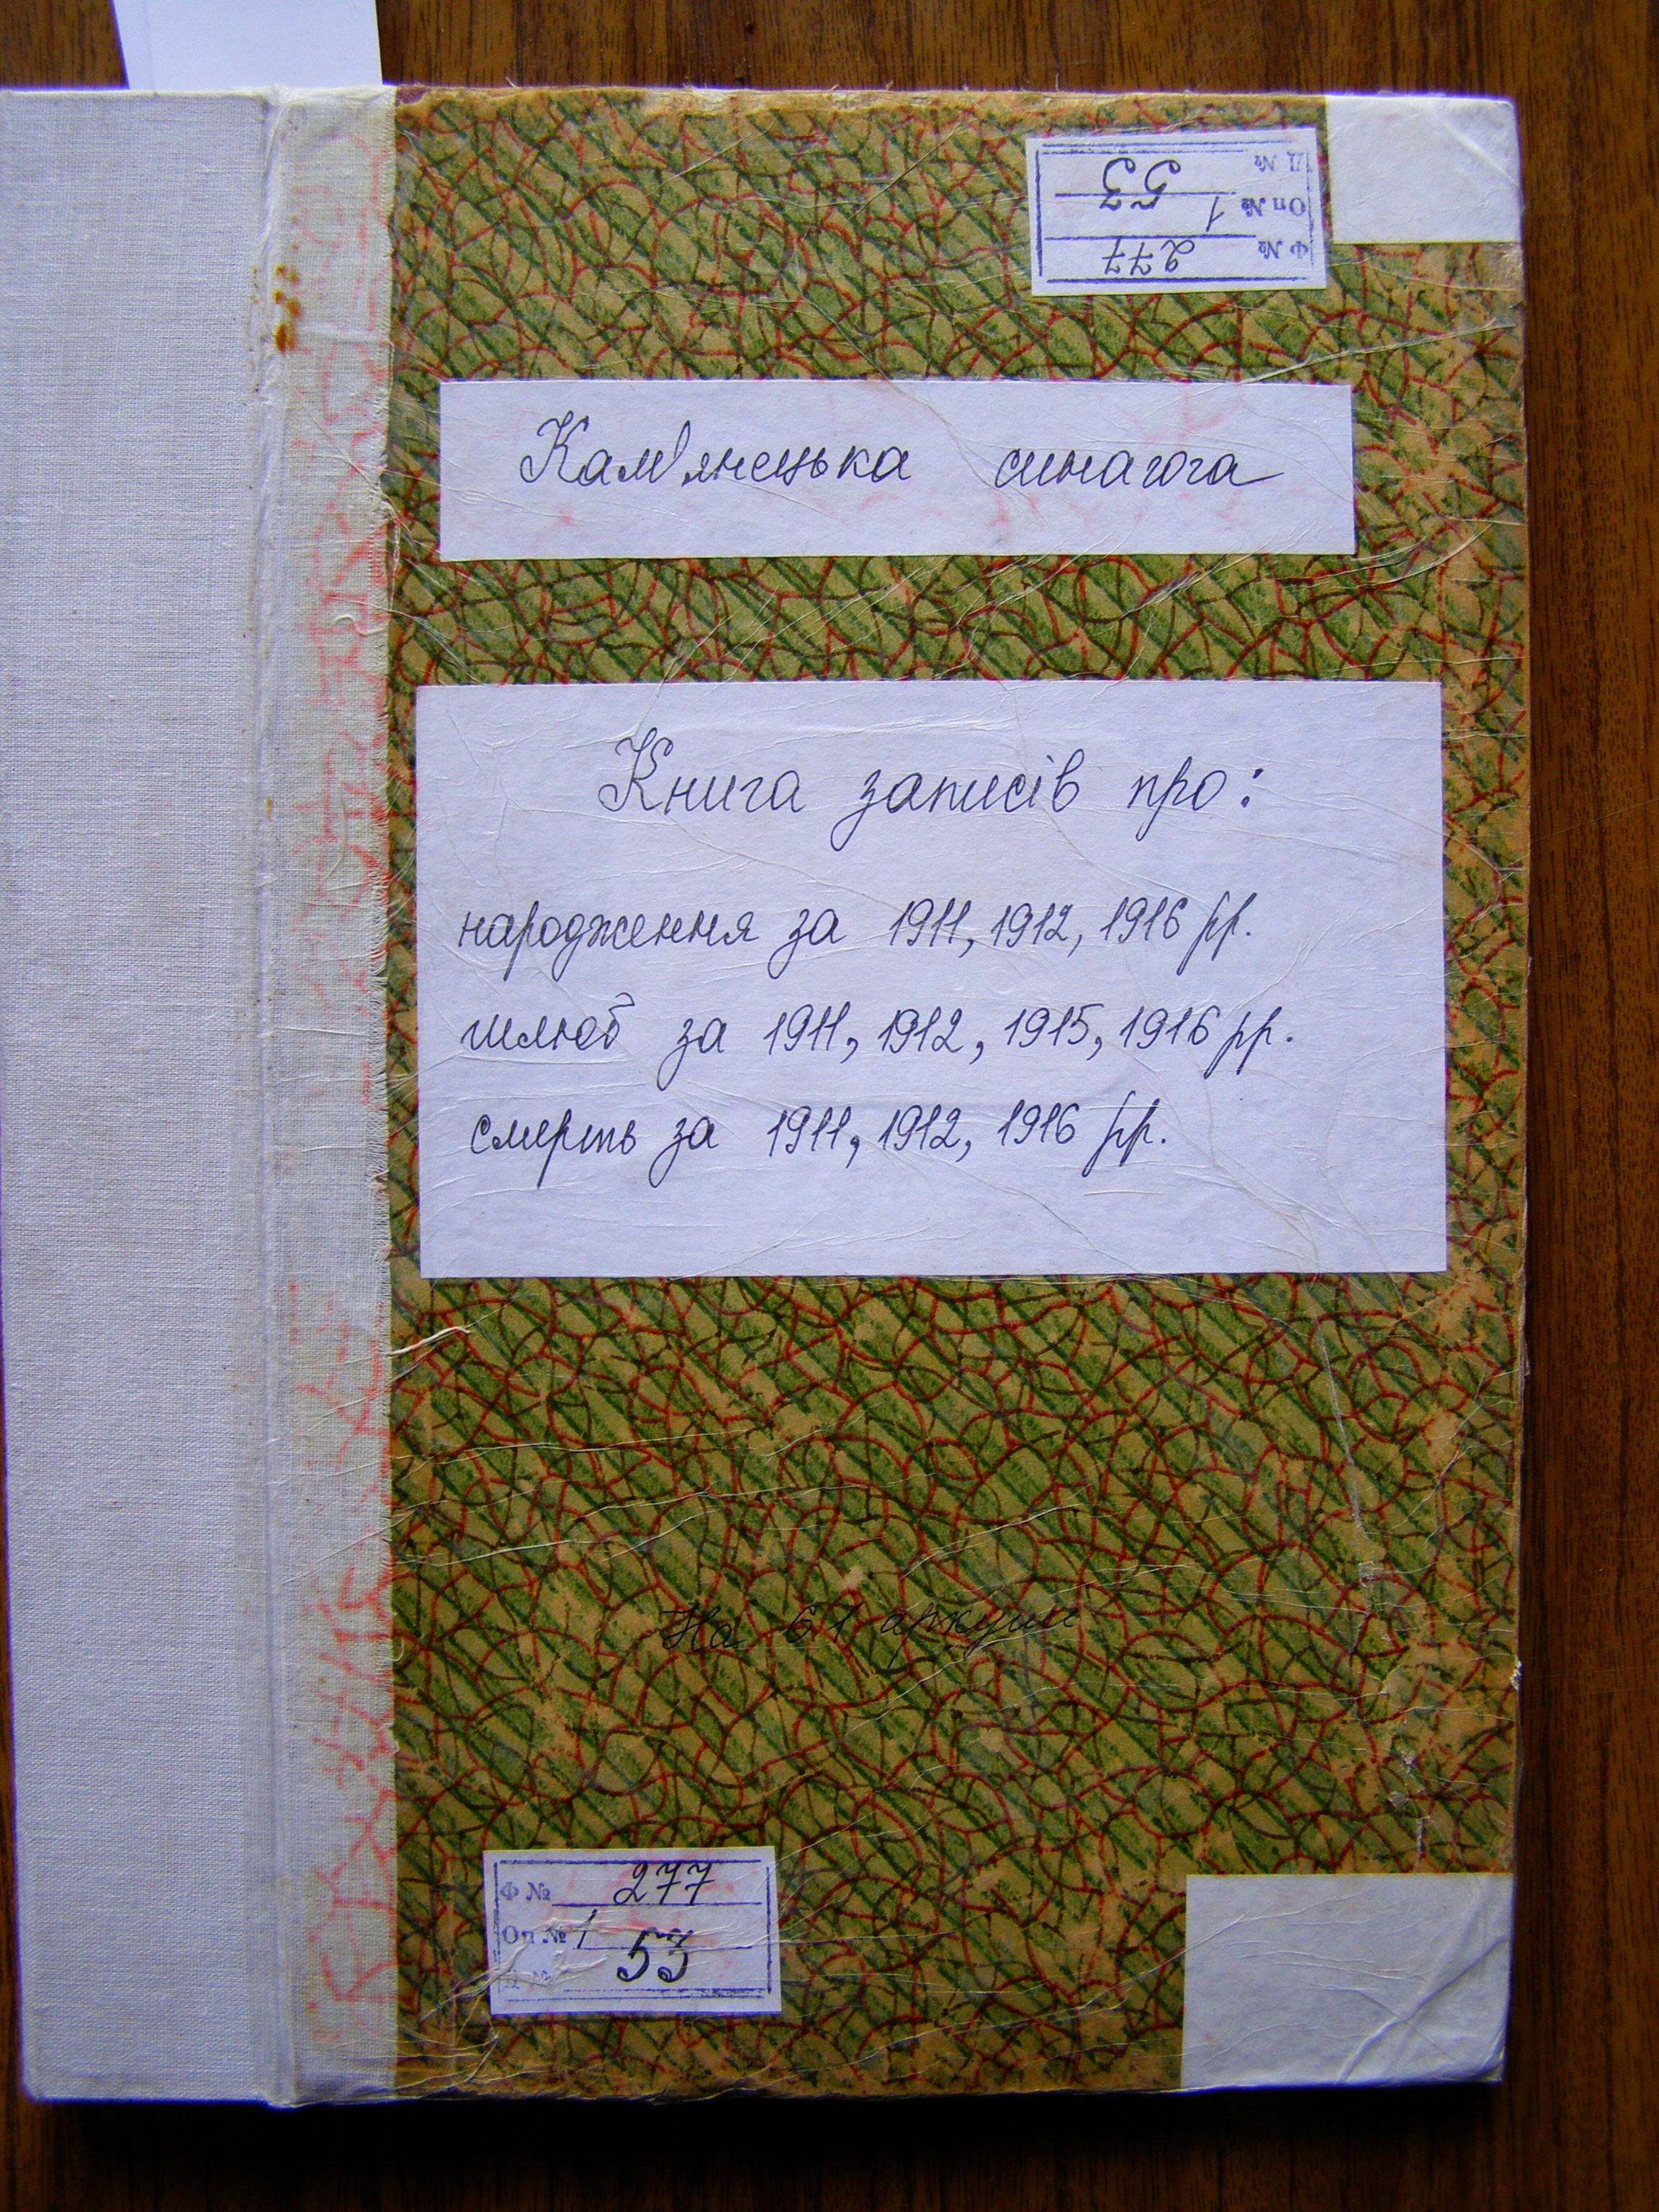 Д №
53
Оп № 1
Ф № 277
Кам'янецька синагога
Книга записів про:
народження за 1911, 1912, 1916 рр.
шлюб за 1911, 1912, 1915, 1916 рр.
смерть за 1911, 1912, 1916 рр.
На 61 аркуші
Ф № 277
Оп № 1
53